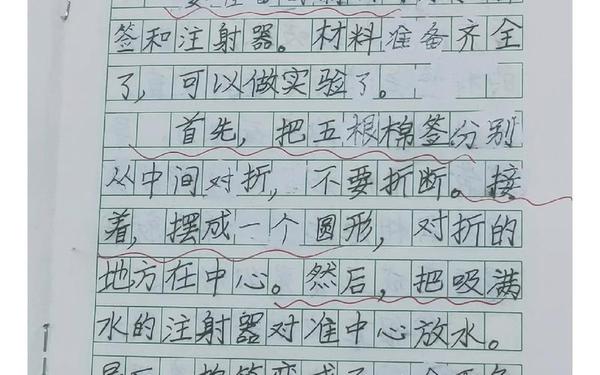 签和注射器。材料准备齐全
了，可以做实验了。
首先，把五根棉签分别
从中间对折，不要折断。接
着，摆成一个圆形，对折的
地方在中心。然后，把吸满
水的注射器对准中心放水。